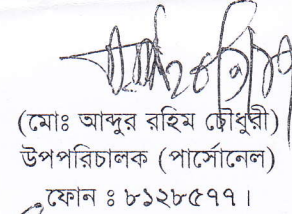 (মোঃ আব্দুর রহিম চৌধুরী)
উপপরিচালক (পার্সোনেল)
ফোন ঃ ৮১২৮৫৭৭।